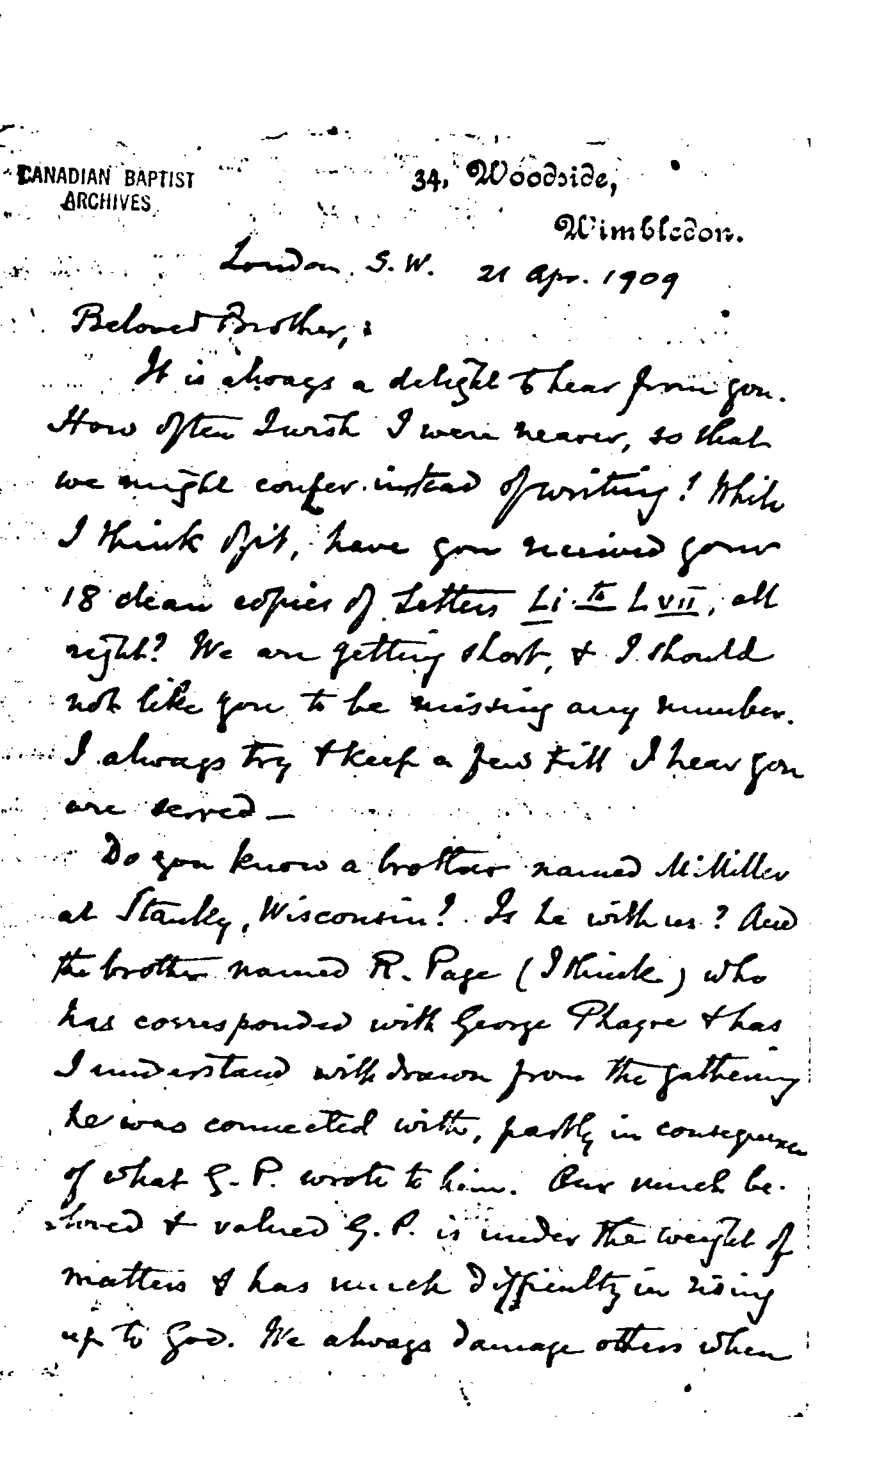 CANADIAN BAPTIST
ARCHIVES
34, Woodside,
Wimbledon.
London. S.W. 21 Apr. 1909
Beloved Brother,
It is always a delight to hear from you.
How often I wish I were nearer, so that
we might confer instead of writing! While
I think of it, have you received your
18 clean copies of Letters Li to Lvii, all
right? We are getting short, & I should
not like you to be missing any number.
I always try to keep a few till I hear you
are served —
Do you know a brother named McMiller
at Stanley, Wisconsin? Is he with us? And
the brother named R. Page (I think) who
has corresponded with George Phayre & has
I understand withdrawn from the gathering
he was connected with, partly in consequence
of what G. P. wrote to him. Our much be-
-loved & valued G. P. is under the weight of
matters & has much difficulty in rising
up to God. We always damage others when